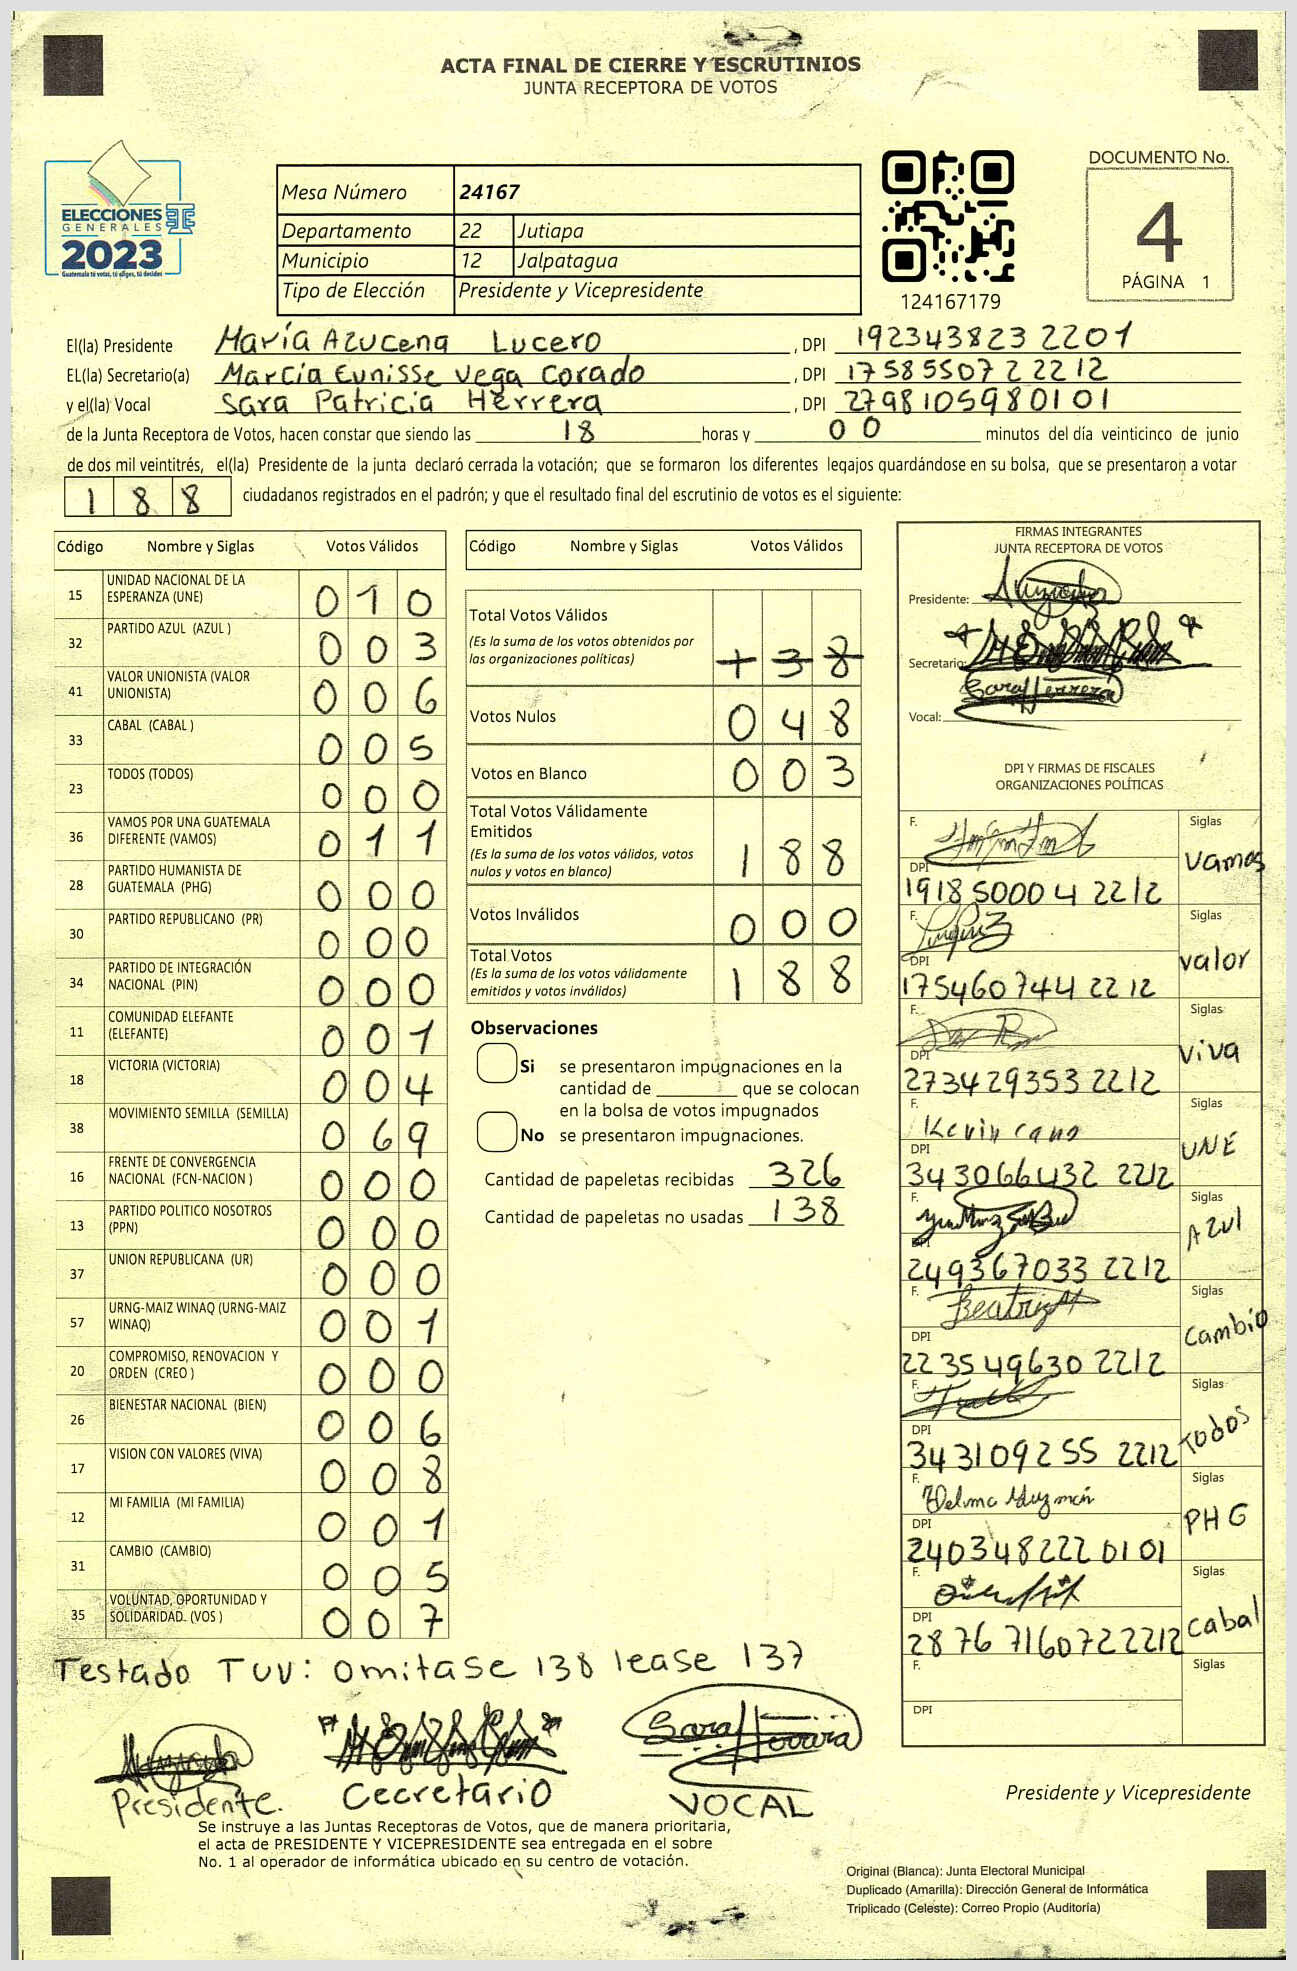 ACTA FINAL DE CIERRE Y ESCRUTINIOS
JUNTA RECEPTORA DE VOTOS
ELECCIONES
GENERALES
2023
Guatemala tú votas, tú eliges, tú decides
Mesa Número 24167
Departamento 22 Jutiapa
Municipio 12 Jalpatagua
Tipo de Elección Presidente y Vicepresidente
124167179
DOCUMENTO No.
4
PÁGINA 1
El(la) Presidente María Azucena Lucero, DPI 192343823 2201
EL(la) Secretario(a) Marcia Eunisse Vega Corado, DPI 175855072 2212
y el(la) Vocal Sara Patricia Herrera, DPI 2798105980101
de la Junta Receptora de Votos, hacen constar que siendo las 18 horas y 00 minutos del día veinticinco de junio
de dos mil veintitrés, el(la) Presidente de la junta declaró cerrada la votación; que se formaron los diferentes legajos quardándose en su bolsa, que se presentaron a votar
188 ciudadanos registrados en el padrón; y que el resultado final del escrutinio de votos es el siguiente:
Código Nombre y Siglas Votos Válidos
15 UNIDAD NACIONAL DE LA ESPERANZA (UNE) 010
32 PARTIDO AZUL (AZUL ) 003
41 VALOR UNIONISTA (VALOR UNIONISTA) 006
33 CABAL (CABAL ) 005
23 TODOS (TODOS) 000
36 VAMOS POR UNA GUATEMALA DIFERENTE (VAMOS) 011
28 PARTIDO HUMANISTA DE GUATEMALA (PHG) 000
30 PARTIDO REPUBLICANO (PR) 000
34 PARTIDO DE INTEGRACIÓN NACIONAL (PIN) 000
11 COMUNIDAD ELEFANTE (ELEFANTE) 001
18 VICTORIA (VICTORIA) 004
38 MOVIMIENTO SEMILLA (SEMILLA) 069
16 FRENTE DE CONVERGENCIA NACIONAL (FCN-NACION ) 000
13 PARTIDO POLITICO NOSOTROS (PPN) 000
37 UNION REPUBLICANA (UR) 000
57 URNG-MAIZ WINAQ (URNG-MAIZ WINAQ) 001
20 COMPROMISO, RENOVACION Y ORDEN (CREO ) 000
26 BIENESTAR NACIONAL (BIEN) 006
17 VISION CON VALORES (VIVA) 008
12 MI FAMILIA (MI FAMILIA) 001
31 CAMBIO (CAMBIO) 005
35 VOLUNTAD, OPORTUNIDAD Y SOLIDARIDAD. (VOS ) 007
Código Nombre y Siglas Votos Válidos
Total Votos Válidos
(Es la suma de los votos obtenidos por
las organizaciones políticas) 138
Votos Nulos 048
Votos en Blanco 003
Total Votos Válidamente
Emitidos
(Es la suma de los votos válidos, votos
nulos y votos en blanco) 188
Votos Inválidos 000
Total Votos
(Es la suma de los votos válidamente
emitidos y votos inválidos) 188
Observaciones
Si se presentaron impugnaciones en la
cantidad de ________ que se colocan
en la bolsa de votos impugnados
No se presentaron impugnaciones.
Cantidad de papeletas recibidas 326
Cantidad de papeletas no usadas 138
FIRMAS INTEGRANTES
JUNTA RECEPTORA DE VOTOS
Presidente:
Secretario:
Sara Herrera
Vocal:
DPI Y FIRMAS DE FISCALES
ORGANIZACIONES POLÍTICAS
F. Siglas
Vamos
DPI
191850004 2212
F. Siglas
valor
DPI
175460744 2212
F. Siglas
viva
DPI
273429353 2212
F. Kevin cano Siglas
UNE
DPI
343066432 2212
F. Siglas
AZUl
DPI
249367033 2212
F. Beatriz Siglas
cambio
DPI
223549630 2212
F. Siglas
TODOS
DPI
343109255 2212
F. Siglas
PHG
DPI
240348222 0101
F. Siglas
cabal
DPI
2876716072212
F. Siglas
DPI
Testado TUV: omitase 138 lease 137
Presidente.
Cecretario
Sara Herrera
VOCAL
Presidente y Vicepresidente
Se instruye a las Juntas Receptoras de Votos, que de manera prioritaria,
el acta de PRESIDENTE Y VICEPRESIDENTE sea entregada en el sobre
No. 1 al operador de informática ubicado en su centro de votación.
Original (Blanca): Junta Electoral Municipal
Duplicado (Amarilla): Dirección General de Informática
Triplicado (Celeste): Correo Propio (Auditoría)